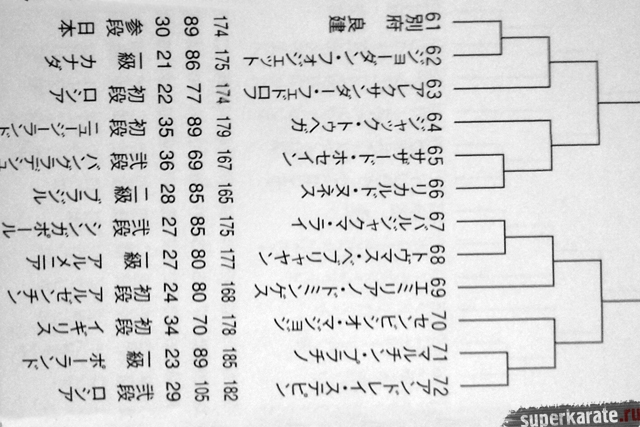 61 別府良建 174 89 30 参段 日本
62 ジョーダン・フォジェット 175 86 21 一級 カナダ
63 アレクサンダー・フェドロフ 174 77 22 初段 ロシア
64 ジャック・トゥヘガ 179 89 35 初段 ニュージーランド
65 サザード・ホセイン 167 69 36 弐段 バングラデシュ
66 リカルド・ヌネス 165 85 28 一級 ブラジル
67 バルジャクマ・ライ 175 85 27 弐段 シンガポール
68 トヴマス・ペブリャヤン 177 80 27 一級 アルメニア
69 エミリアノ・ドミンゲス 168 80 24 初段 アルゼンチン
70 センピシオ・マンション 178 70 34 初段 イギリス
71 マルチン・プラチノ 185 89 23 一級 ポーランド
72 アンドレイ・ステピン 182 105 29 弐段 ロシア
superkarate.ru